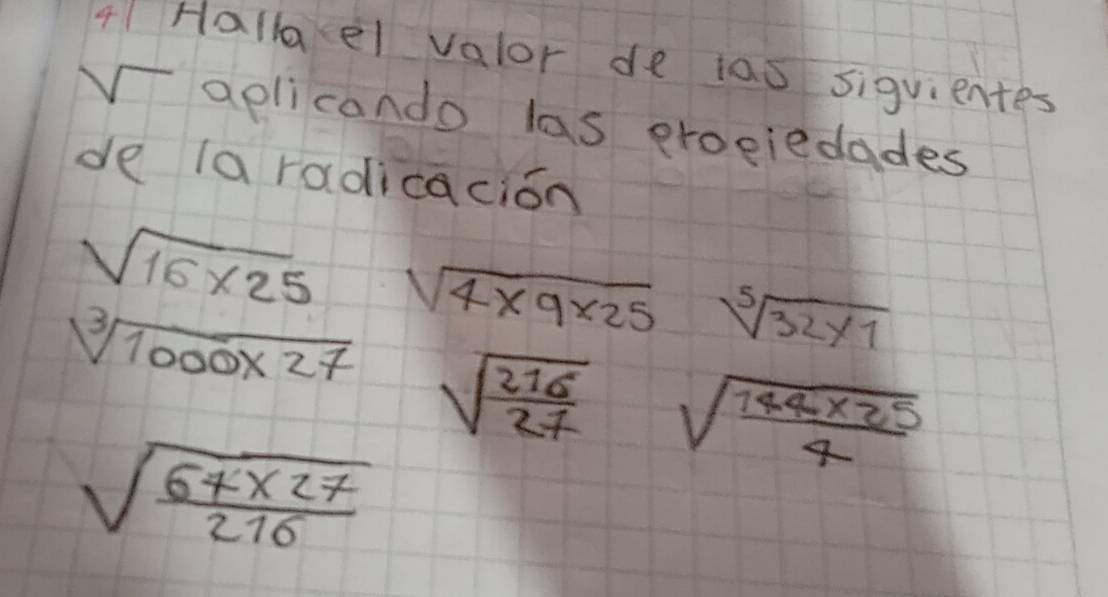 4| Halla el valor de las siguientes
√ aplicando las propiedades
de la radicación
√16×25 √4×9×25 ⁵√32×1
³√1000×27 √216/27 √144×25/4
√64×27/216